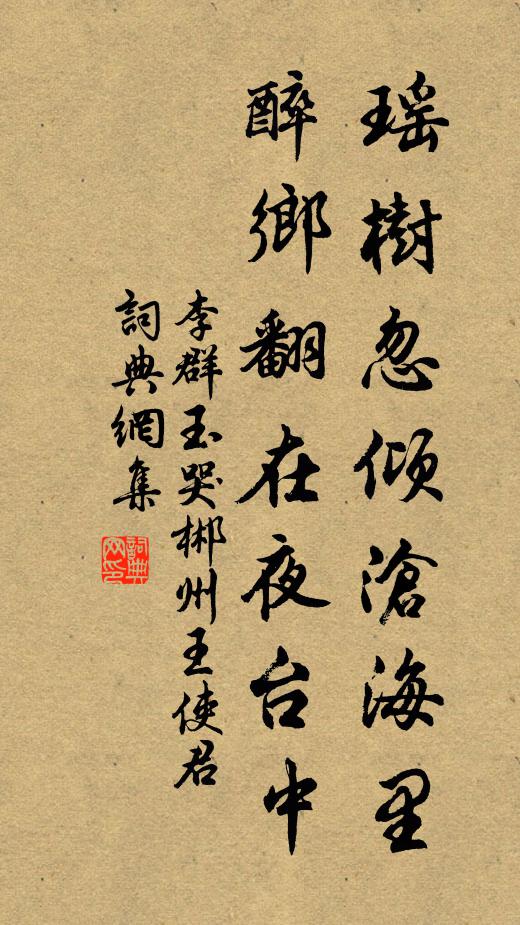 瑶樹忽傾滄海里
醉鄉翻在夜台中
李群玉哭郴州王使君
詞典網集
詞典网印